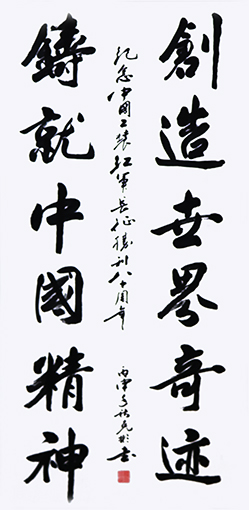 創造世界奇迹
鑄就中國精神
紀念中國工農紅軍長征勝利八十周年
丙申